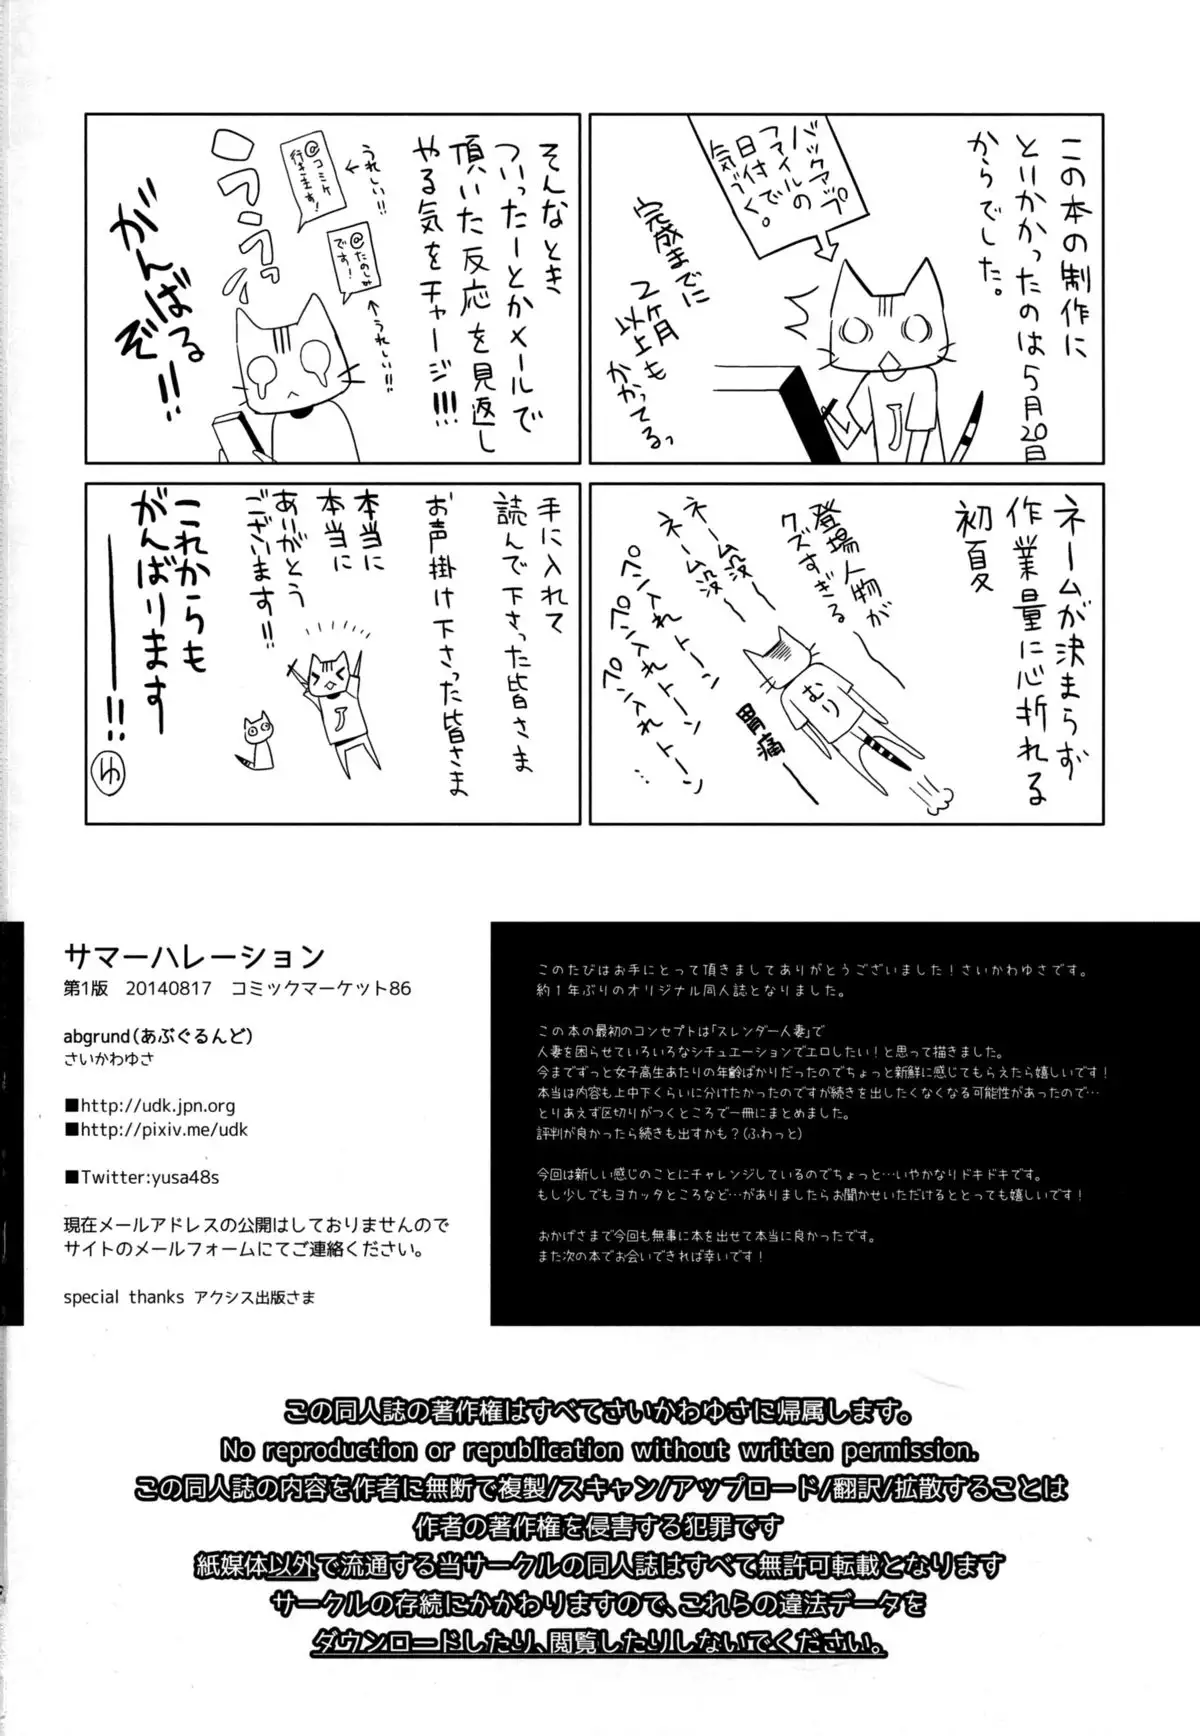 この本の制作に
とりかかったのは5月20日
からでした。
バックアップ
ファイルの
日付で
気づく。
完成までに
2ヶ月
以上も
かかってるっ
そんなとき
ついったーとかメールで
頂いた反応を見返し
やる気をチャージ!!!
うれしい!!
@コミケ
行きます!
@たのしみ
です!
うれしい!!
がんばる
ぞ!!
ネームが決まらず
作業量に心折れる
初夏
登場人物が
クズすぎる
ネーム没ー
ネーム没ー
ペン入れトーン
ペン入れトーン
ペン入れトーン
むり
胃痛ー
手に入れて
読んで下さった皆さま
お声掛け下さった皆さま
本当に
本当に
ありがとう
ございます!!
これからも
がんばります
ー!!
ゆ
サマーハレーション
第1版 20140817 コミックマーケット86
abgrund(あぶぐるんど)
さいかわゆさ
■http://udk.jpn.org
■http://pixiv.me/udk
■Twitter:yusa48s
現在メールアドレスの公開はしておりませんので
サイトのメールフォームにてご連絡ください。
special thanks アクシス出版さま
このたびはお手にとって頂きましてありがとうございました!さいかわゆさです。
約1年ぶりのオリジナル同人誌となりました。
この本の最初のコンセプトは「スレンダー人妻」で
人妻を困らせていろいろなシチュエーションでエロしたい!と思って描きました。
今までずっと女子高生あたりの年齢ばかりだったのでちょっと新鮮に感じてもらえたら嬉しいです!
本当は内容も上中下くらいに分けたかったのですが続きを出したくなくなる可能性があったので…
とりあえず区切りがつくところで一冊にまとめました。
評判が良かったら続きも出すかも?(ふわっと)
今回は新しい感じのことにチャレンジしているのでちょっと…いやかなりドキドキです。
もし少しでもヨカッタところなど…がありましたらお聞かせいただけるととっても嬉しいです!
おかげさまで今回も無事に本を出せて本当に良かったです。
また次の本でお会いできれば幸いです!
この同人誌の著作権はすべてさいかわゆさに帰属します。
No reproduction or republication without written permission.
この同人誌の内容を作者に無断で複製/スキャン/アップロード/翻訳/拡散することは
作者の著作権を侵害する犯罪です
紙媒体以外で流通する当サークルの同人誌はすべて無許可転載となります
サークルの存続にかかわりますので、これらの違法データを
ダウンロードしたり、閲覧したりしないでください。